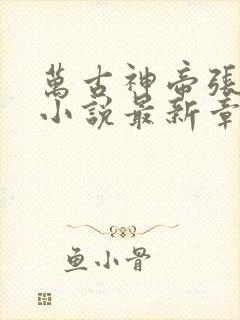 萬古神帝張
小說最新章
鱼小骨